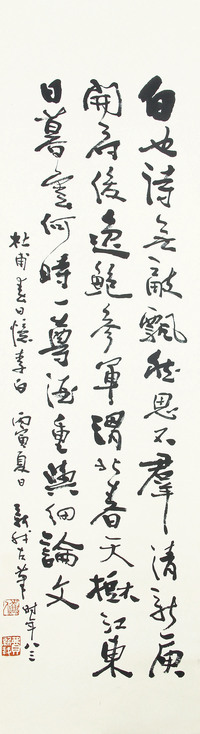 白也詩無敵飄然思不羣清新庾
開府俊逸鮑參軍渭北春天樹江東
日暮雲何時一尊酒重與細論文
杜甫春日憶李白 丙寅夏日 新我左筆 時年八三